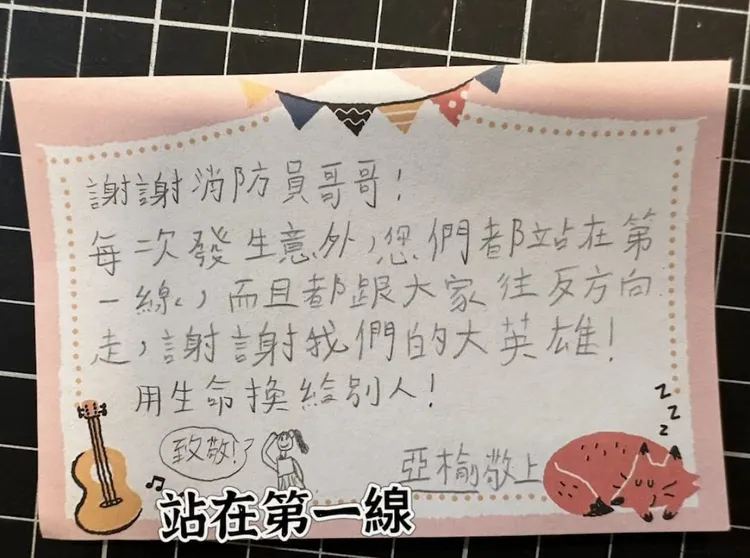 謝謝消防員哥哥!
每次發生意外,您們都站在第
一線,而且都跟大家往反方向
走,謝謝我們的大英雄!
用生命換給別人!
致敬!
亞榆敬上
z
z
z
站在第一線